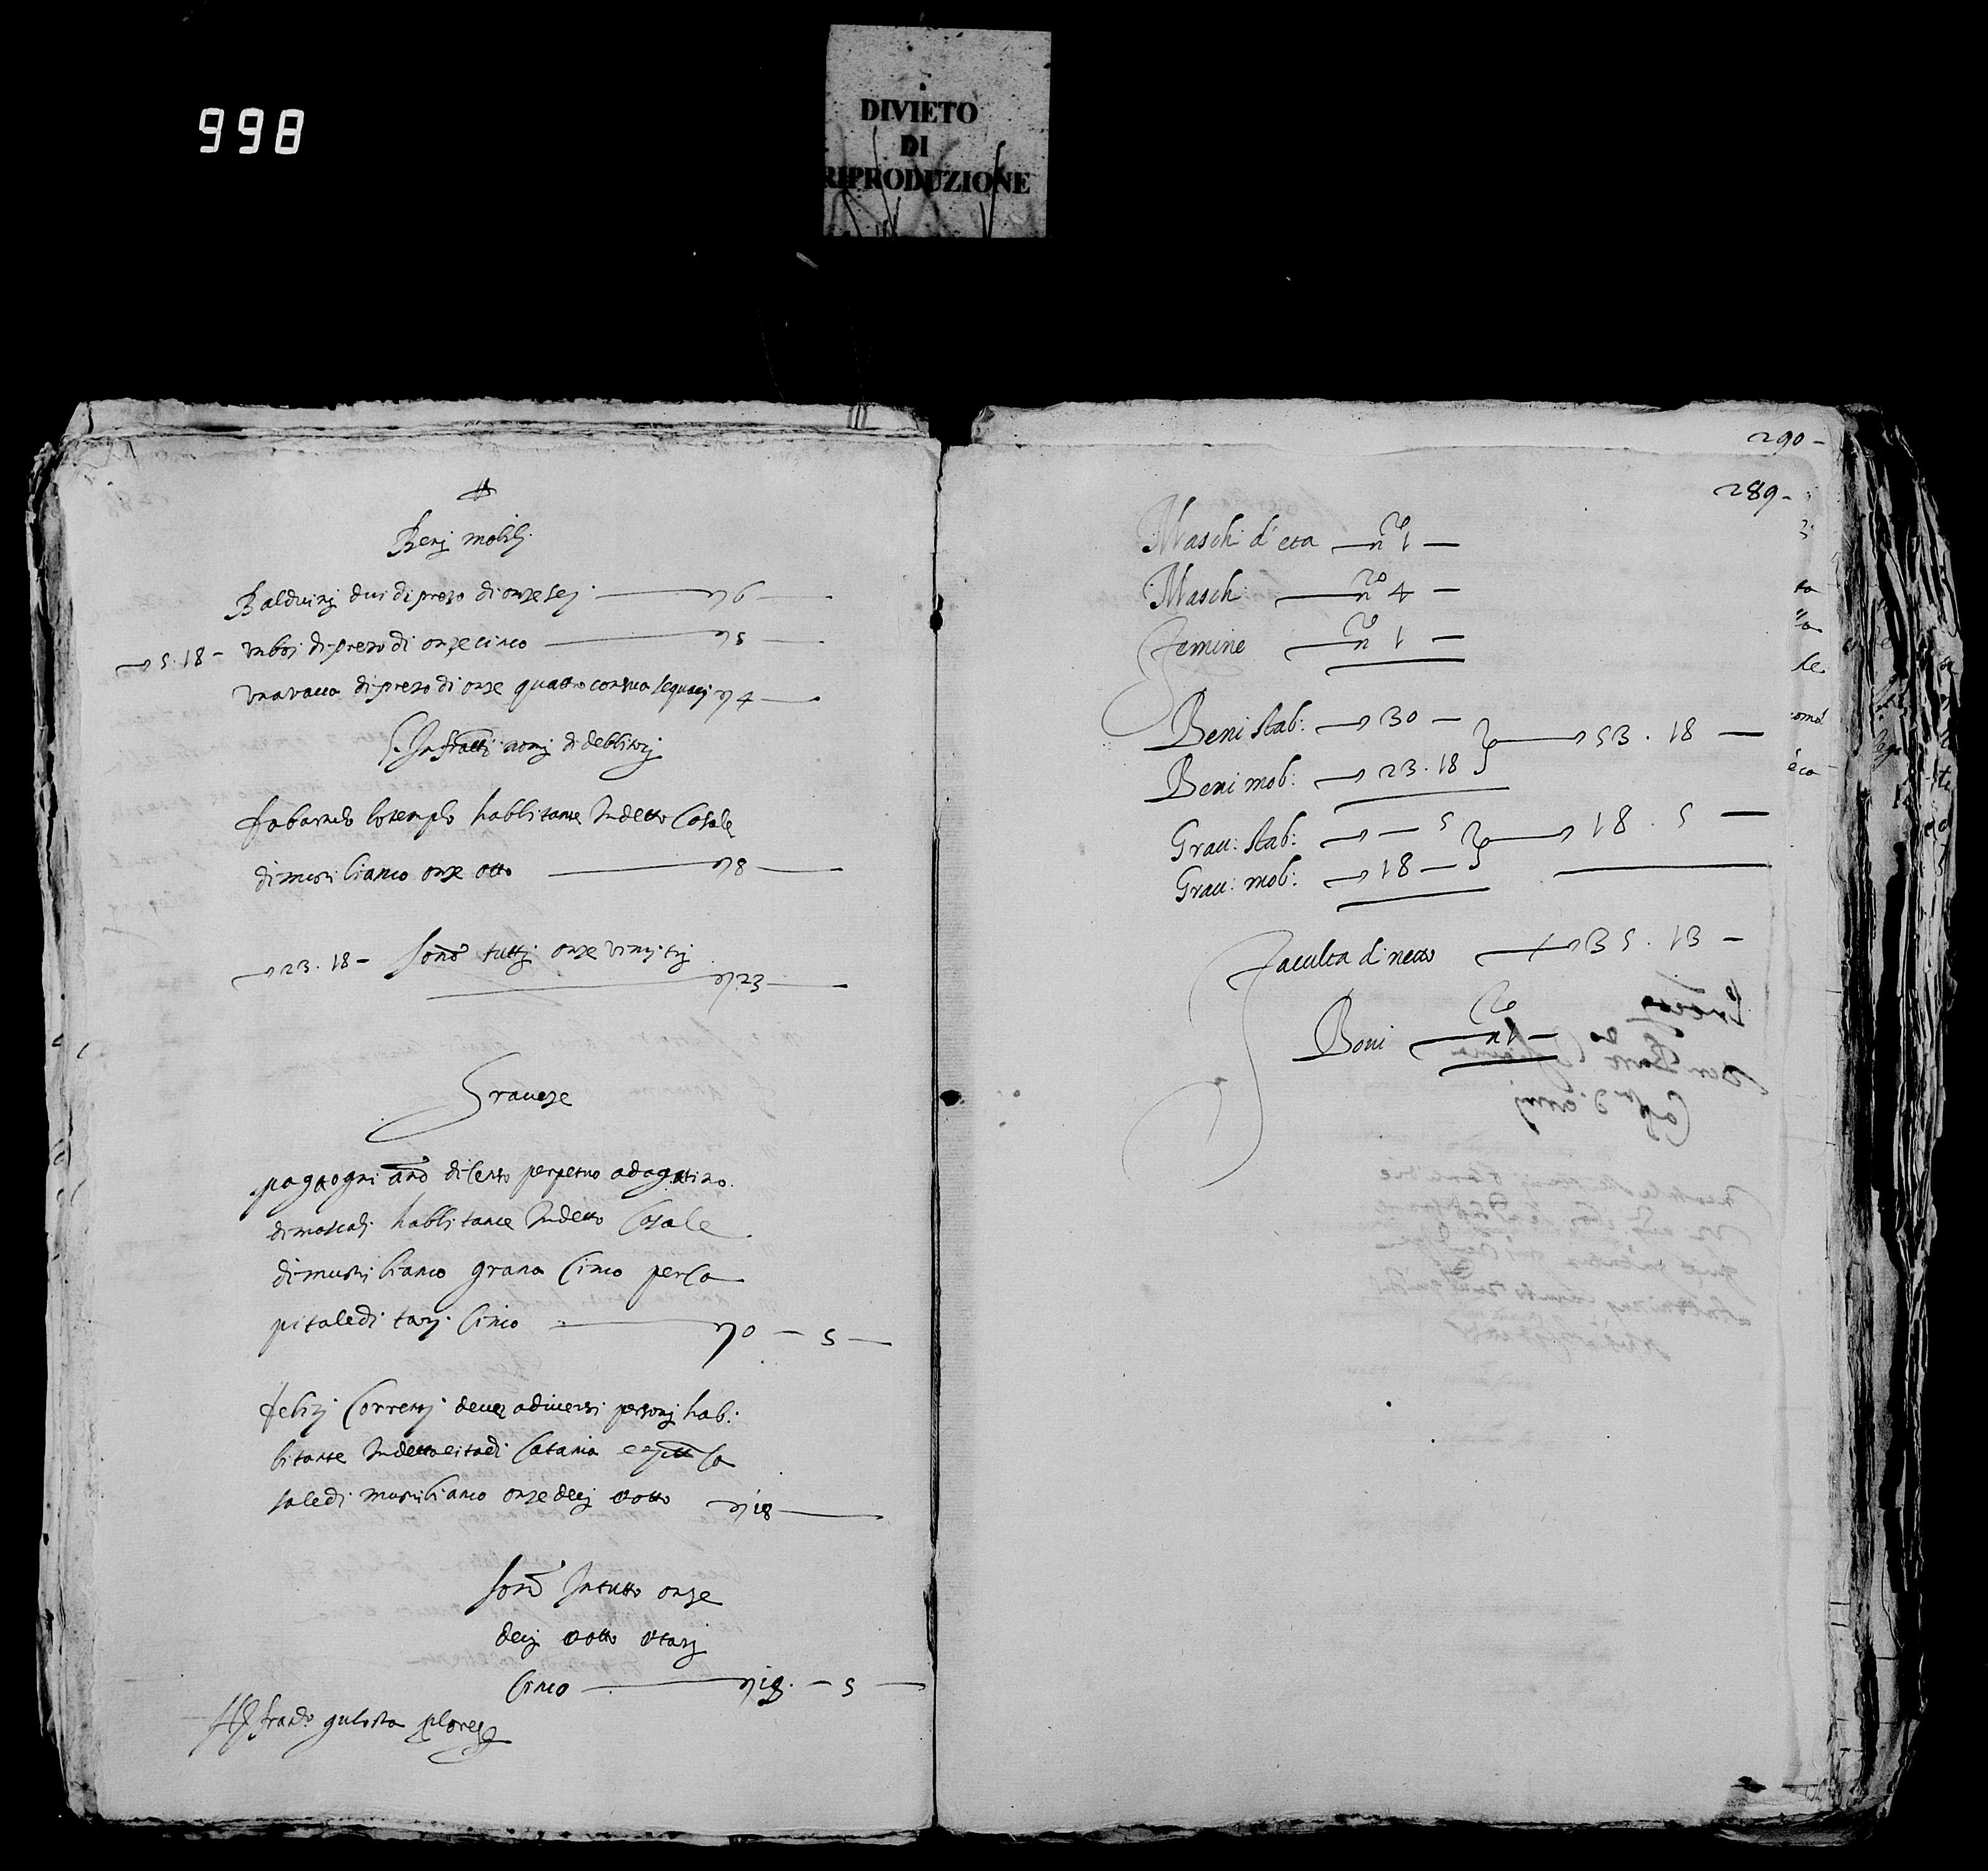 998
DIVIETO
DI
RIPRODUZIONE
Benj mobilj
Balduinj dui di prezo di onze sej 6
5.18 - unboj di prezo di onze cinco 5
una vacca di prezo di onze quattro con sua sequaci 4
Infratti nomj di debbitorj
habbitante In detto Casale
di mistirbianco onze otto 8
23.18 - sono tuttj onze vintj trj
23
Graveze
paga ogni anno di censo perpetuo ad agatino
di moscati habbitante In detto Casale
di mustirbianco grana Cinco per Ca
pitale di tarj Cinco 0 - 5
Correnti deve a diversi personj hab:
bitante In detta cita di Catania e Ca
sale di mustirbianco onze decj otto 18
sono In tutto onze
decj otto e tarj
Cinco 18 - 5
290 -
289 -
Maschi d'eta n.o 1 -
Maschi n.o 4 -
Femine n.o 1 -
Beni stab: 30 -
53 . 18 -
Beni mob: 23 . 18
Grav: stab: - 5
18 . 5 -
Grav: mob: 18 -
Faculta di netto 35 . 13 -
Bovi n.o 1 -